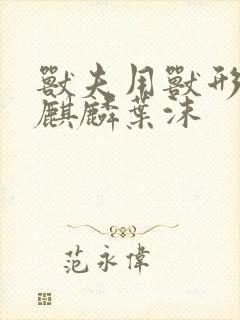 獸夫用獸形
麒麟葉沫
范永偉